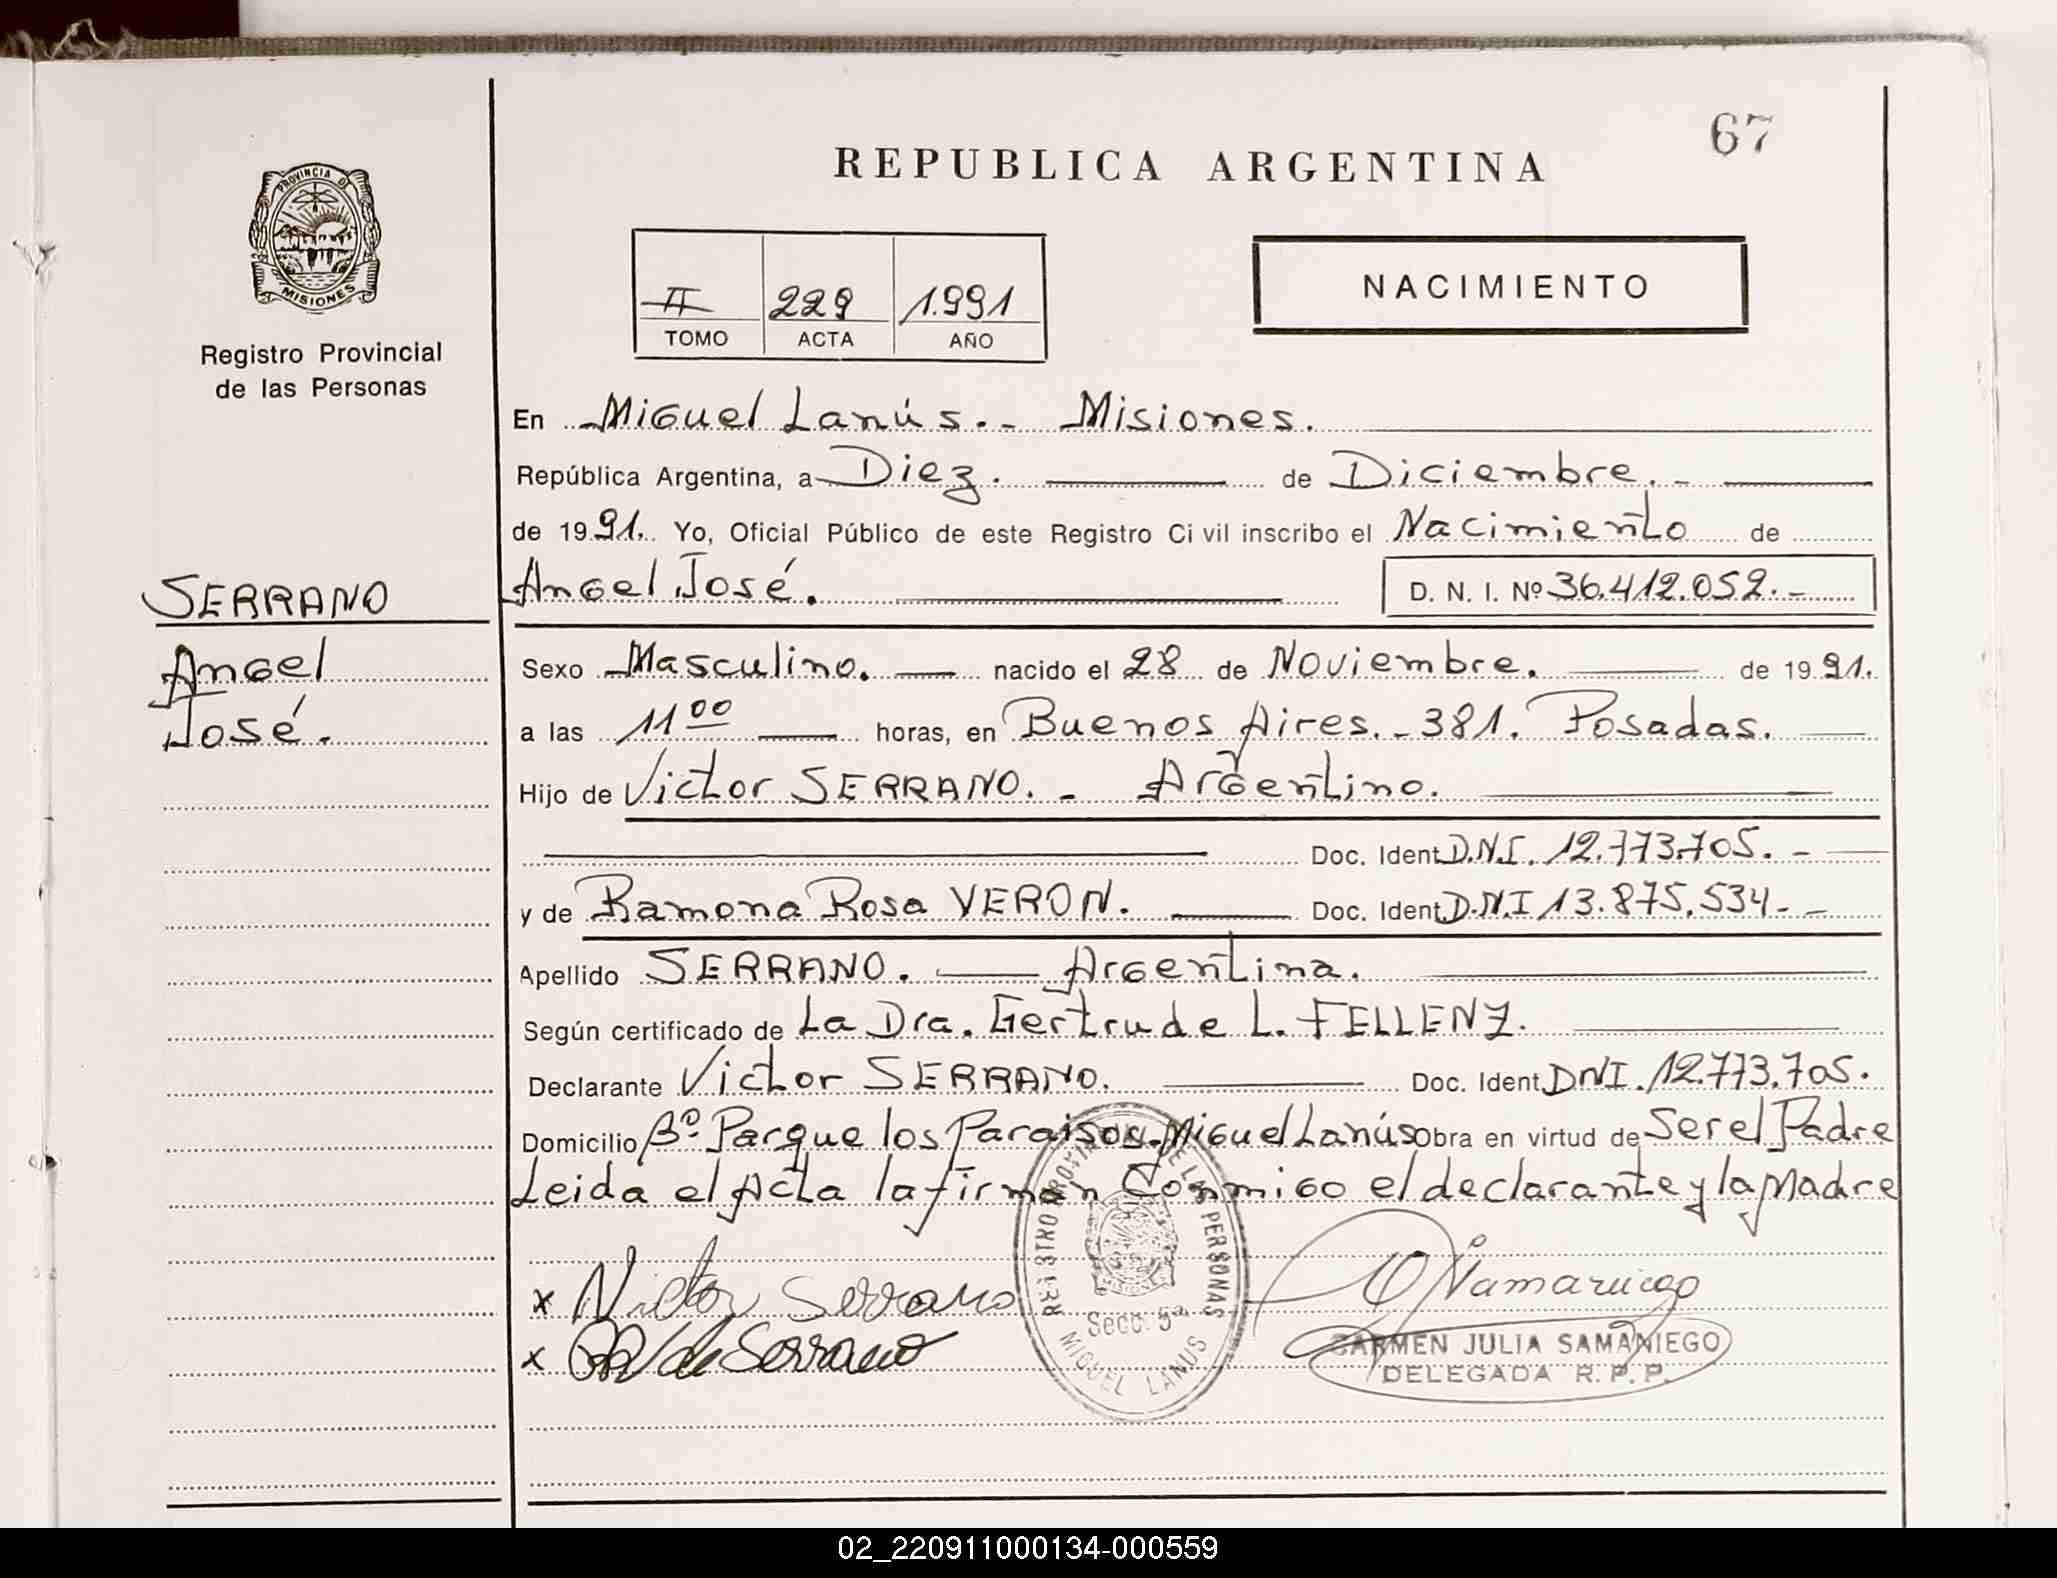 67
REPUBLICA ARGENTINA
PROVINCIA DE
MISIONES
Registro Provincial
de las Personas
II 229 1.991
TOMO ACTA AÑO
NACIMIENTO
En Miguel Lanús.- Misiones.
República Argentina, a Diez. de Diciembre.-
de 1991. Yo, Oficial Público de este Registro Civil inscribo el Nacimiento de
SERRANO
Angel José. D. N. I. Nº 36.412.052.-
Angel
José.
Sexo Masculino. nacido el 28 de Noviembre. de 1991.
a las 11 00 horas, en Buenos Aires.- 381. Posadas.
Hijo de Victor SERRANO.- Argentino.
Doc. Ident. D.N.I. 12.773.705.-
y de Ramona Rosa VERON. Doc. Ident. D.N.I 13.875.534.-
Apellido SERRANO. Argentina.
Según certificado de La Dra. Gertrude L. FELLENZ.
Declarante Victor SERRANO. Doc. Ident. DNI. 12.773.705.
Domicilio Bº Parque los Paraisos. Miguel Lanús Obra en virtud de Ser el Padre
Leida el Acta la firman Conmigo el declarante y la Madre
x Victor Serrano
x RRV de Serrano
REGISTRO PROVINCIAL DE LAS PERSONAS
Secc. 5ª
MIGUEL LANUS
CJSamaniego
CARMEN JULIA SAMANIEGO
DELEGADA R. P. P.
02_220911000134-000559